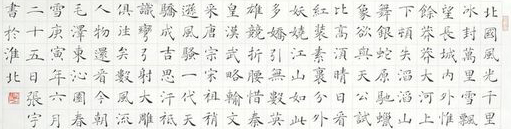 北國風光千里
冰封萬里雪飄
望長城內外惟
餘莽莽大河上
下頓失滔滔山
舞銀蛇原馳蠟
象欲與天公試
比高須晴日看
紅裝素裹分外
妖嬈江山如此
多嬌引無數英
雄競折腰惜秦
皇漢武略輸文
采唐宗宋祖稍
遜風騷一代天
驕成吉思汗
識彎弓射大雕
俱往矣數風流
人物還看今朝
毛澤東沁園春
雪庚寅年六月
二十五日張宇
書於淮北